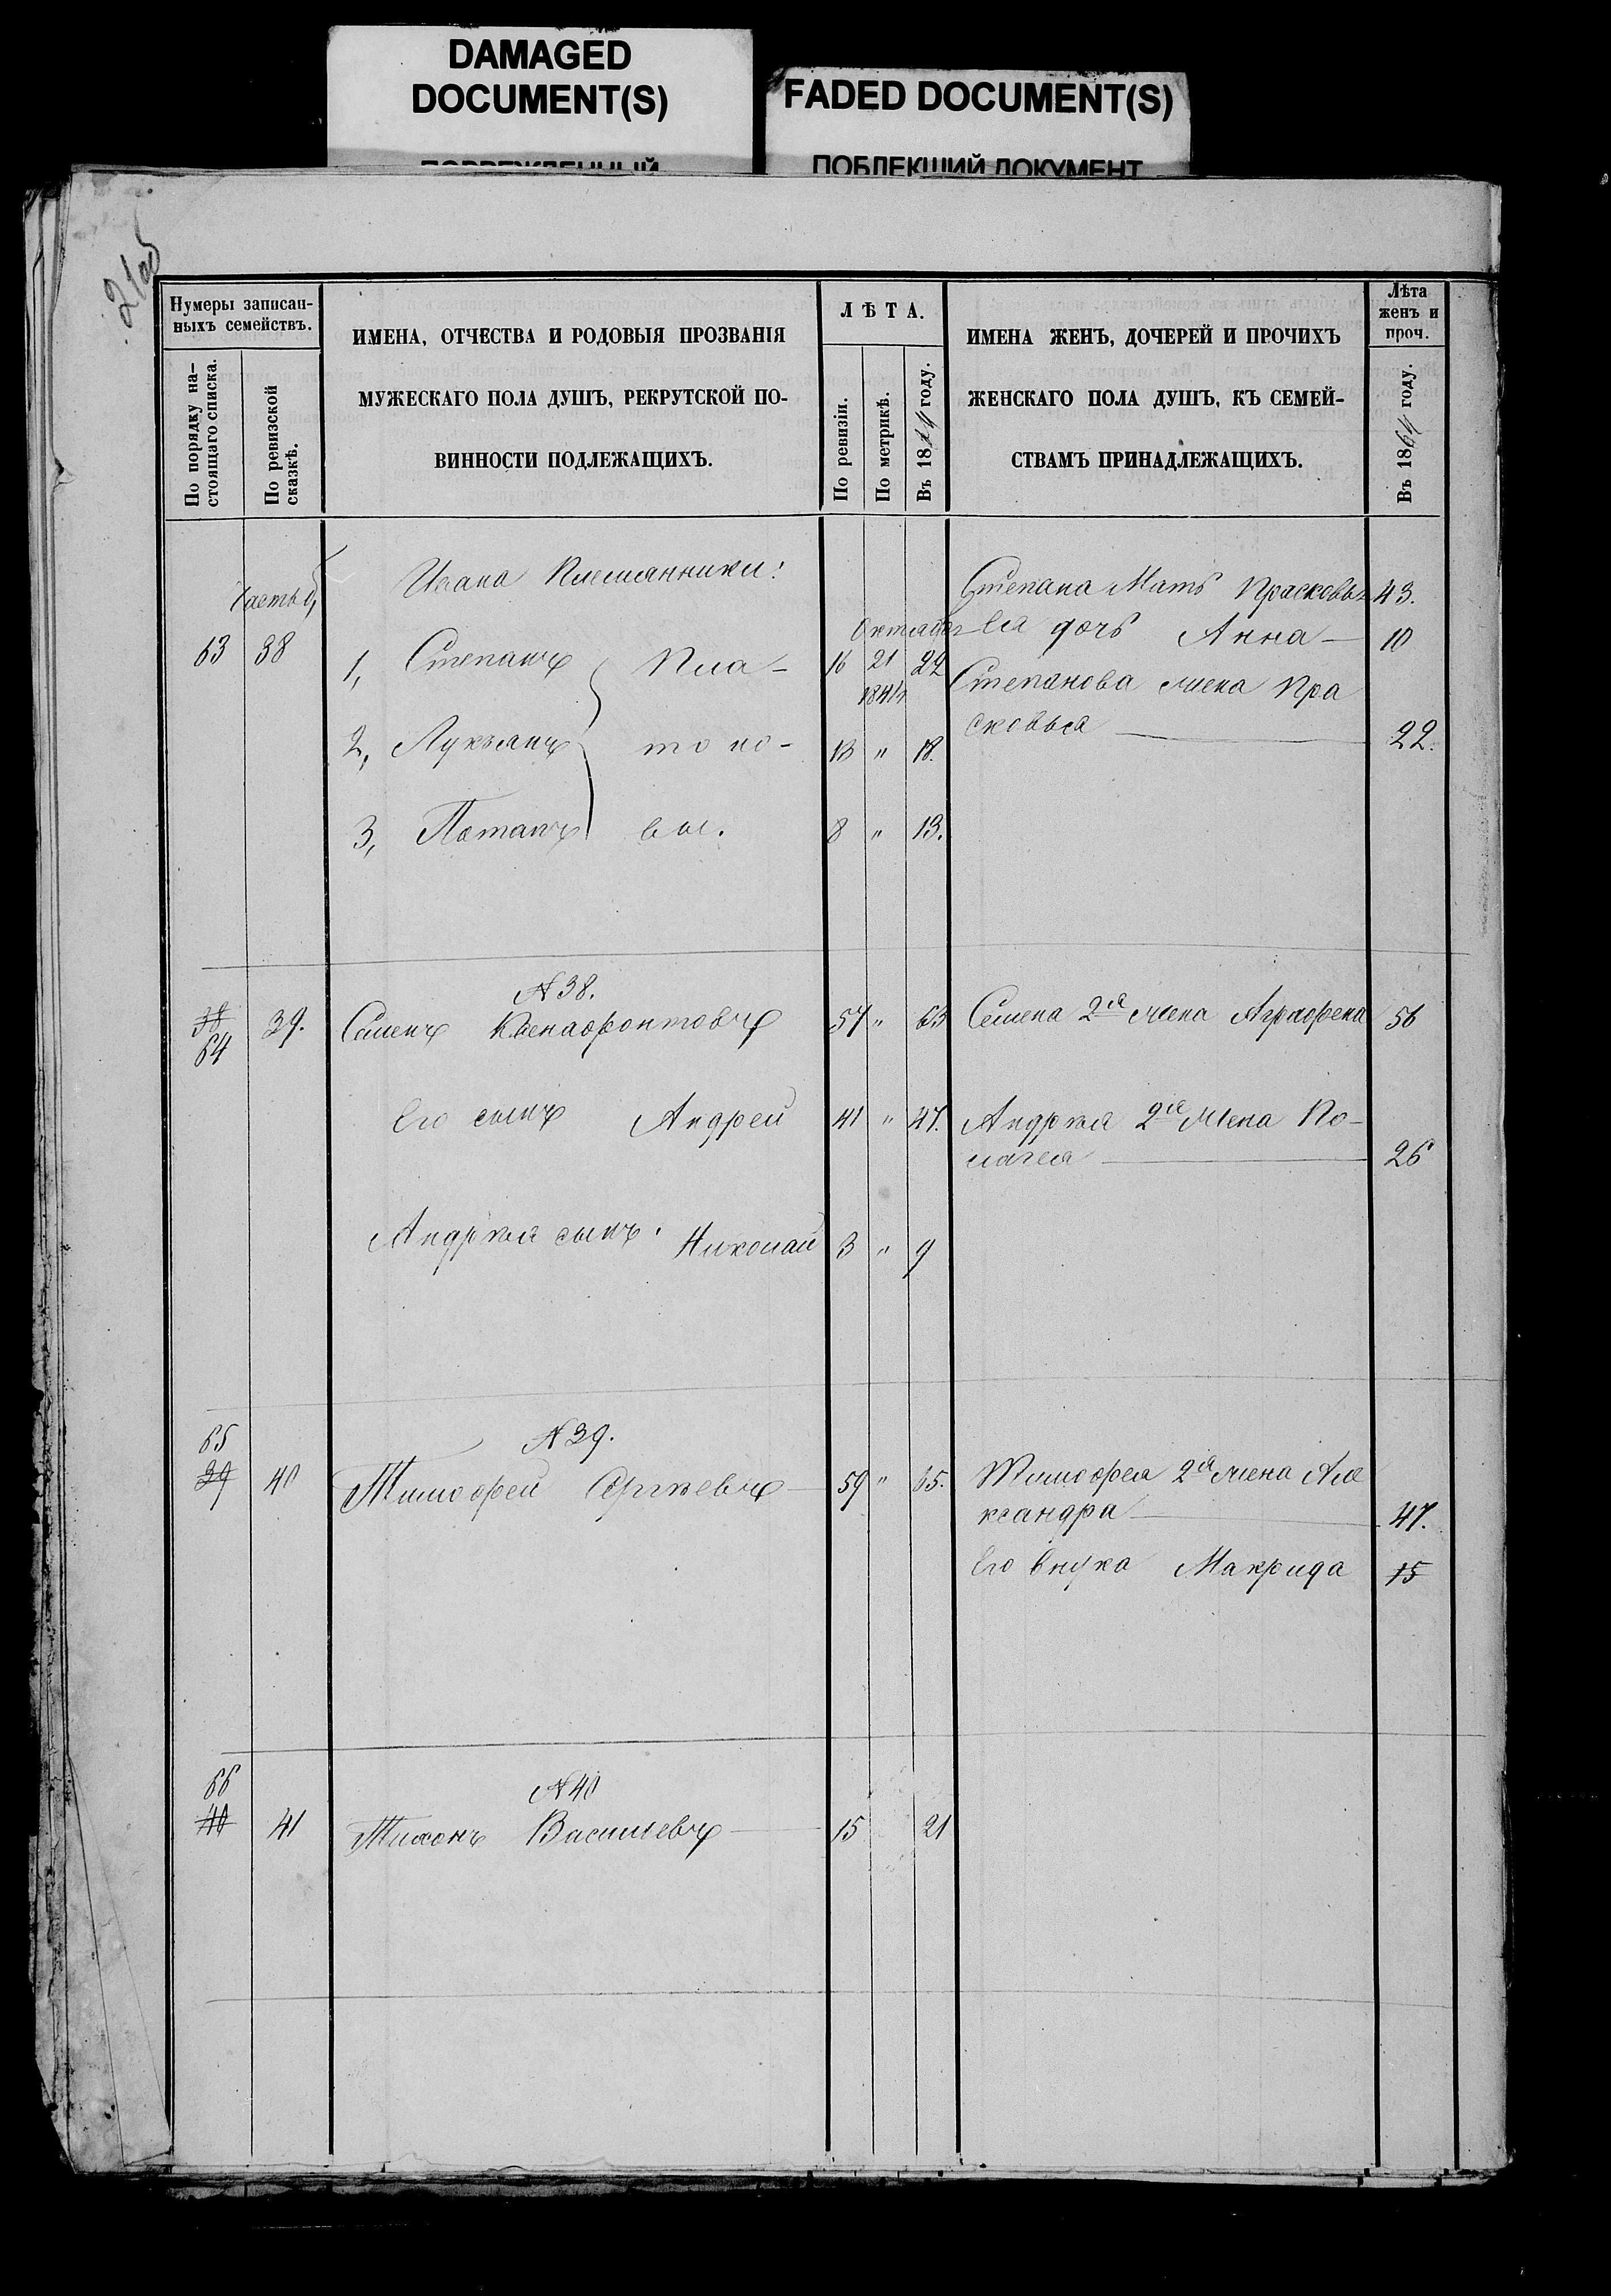 DAMAGED
DOCUMENT(S)
FADED DOCUMENT(S)
ПОВРЕЖДЕННЫЙ
ПОБЛЕКШИЙ ДОКУМЕНТ
21об
Нумеры записан-
ныхъ семействъ.
По порядку на-
стоящаго списка.
По ревизской
сказкѣ.
ИМЕНА, ОТЧЕСТВА И РОДОВЫЯ ПРОЗВАНІЯ
МУЖЕСКАГО ПОЛА ДУШЪ, РЕКРУТСКОЙ ПО-
ВИННОСТИ ПОДЛЕЖАЩИХЪ.
ЛѢТА.
По ревизіи.
По метрикѣ.
Въ 1864 году.
ИМЕНА ЖЕНЪ, ДОЧЕРЕЙ И ПРОЧИХЪ
ЖЕНСКАГО ПОЛА ДУШЪ, КЪ СЕМЕЙ-
СТВАМЪ ПРИНАДЛЕЖАЩИХЪ.
Лѣта
женъ и
проч.
Въ 1864 году.
Ивана Племянники:
Степана Мать Прасковья 43.
Часть
Октября
Ея дочь Анна — 10
63 38 1, Степанъ Пла- 16 21 22
1841
Степанова жена Пра
сковья — 22.
2, Лукьянъ то но- 13 " 18.
3, Потапъ вы. 8 " 13.
N 38.
38 39. Семенъ Ксенафонтовъ 57 " 63 Семена 2я жена Аграфена 56
64
Его сынъ Андрей 41 " 47. Андрея 2я жена Пе-
лагея — 26
Андрея сынъ Николай 3 " 9
65 N 39.
39 40 Тимофей Сергѣевъ — 59 " 65. Тимофея 2я жена Але
ксандра — 47.
Его внука Макрида 15
66 N 40
40 41 Тихонъ Васильевъ — 15 21